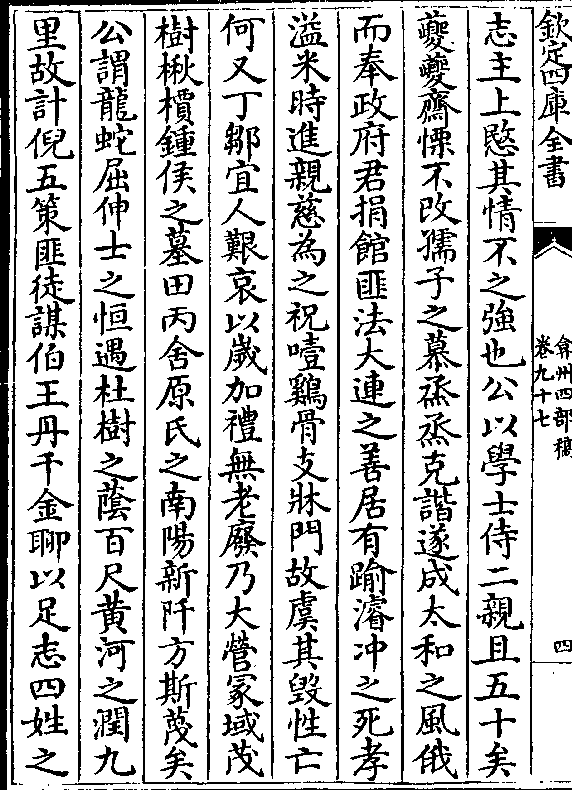 欽定四庫全書
弇州四部稿
卷九十七
四
志主上愍其情不之強也公以學士侍二親且五十矣
夔夔齋慄不改孺子之慕烝烝克諧遂成太和之風俄
而奉政府君捐館匪法大連之善居有踰濬冲之死孝
溢米時進親慈為之祝噎鷄骨支牀門故虞其毀性亡
何又丁鄒宜人艱哀以嵗加禮無老廢乃大營冡域茂
樹楸檟鍾侯之墓田丙舍原氏之南陽新阡方斯蔑矣
公謂龍蛇屈伸士之恒遇杜樹之蔭百尺黄河之潤九
里故計倪五策匪徒謀伯王丹千金聊以足志四姓之